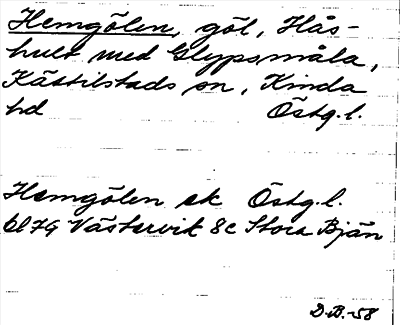 Hemgölen, göl, Hås-
hult med Glypsmåla,
Kättilstads sn, Kinda
hd Östg.l.
Hemgölen ek Östg.l.
bl 79 Västervik 8c Stora Bjän
D.B.-58